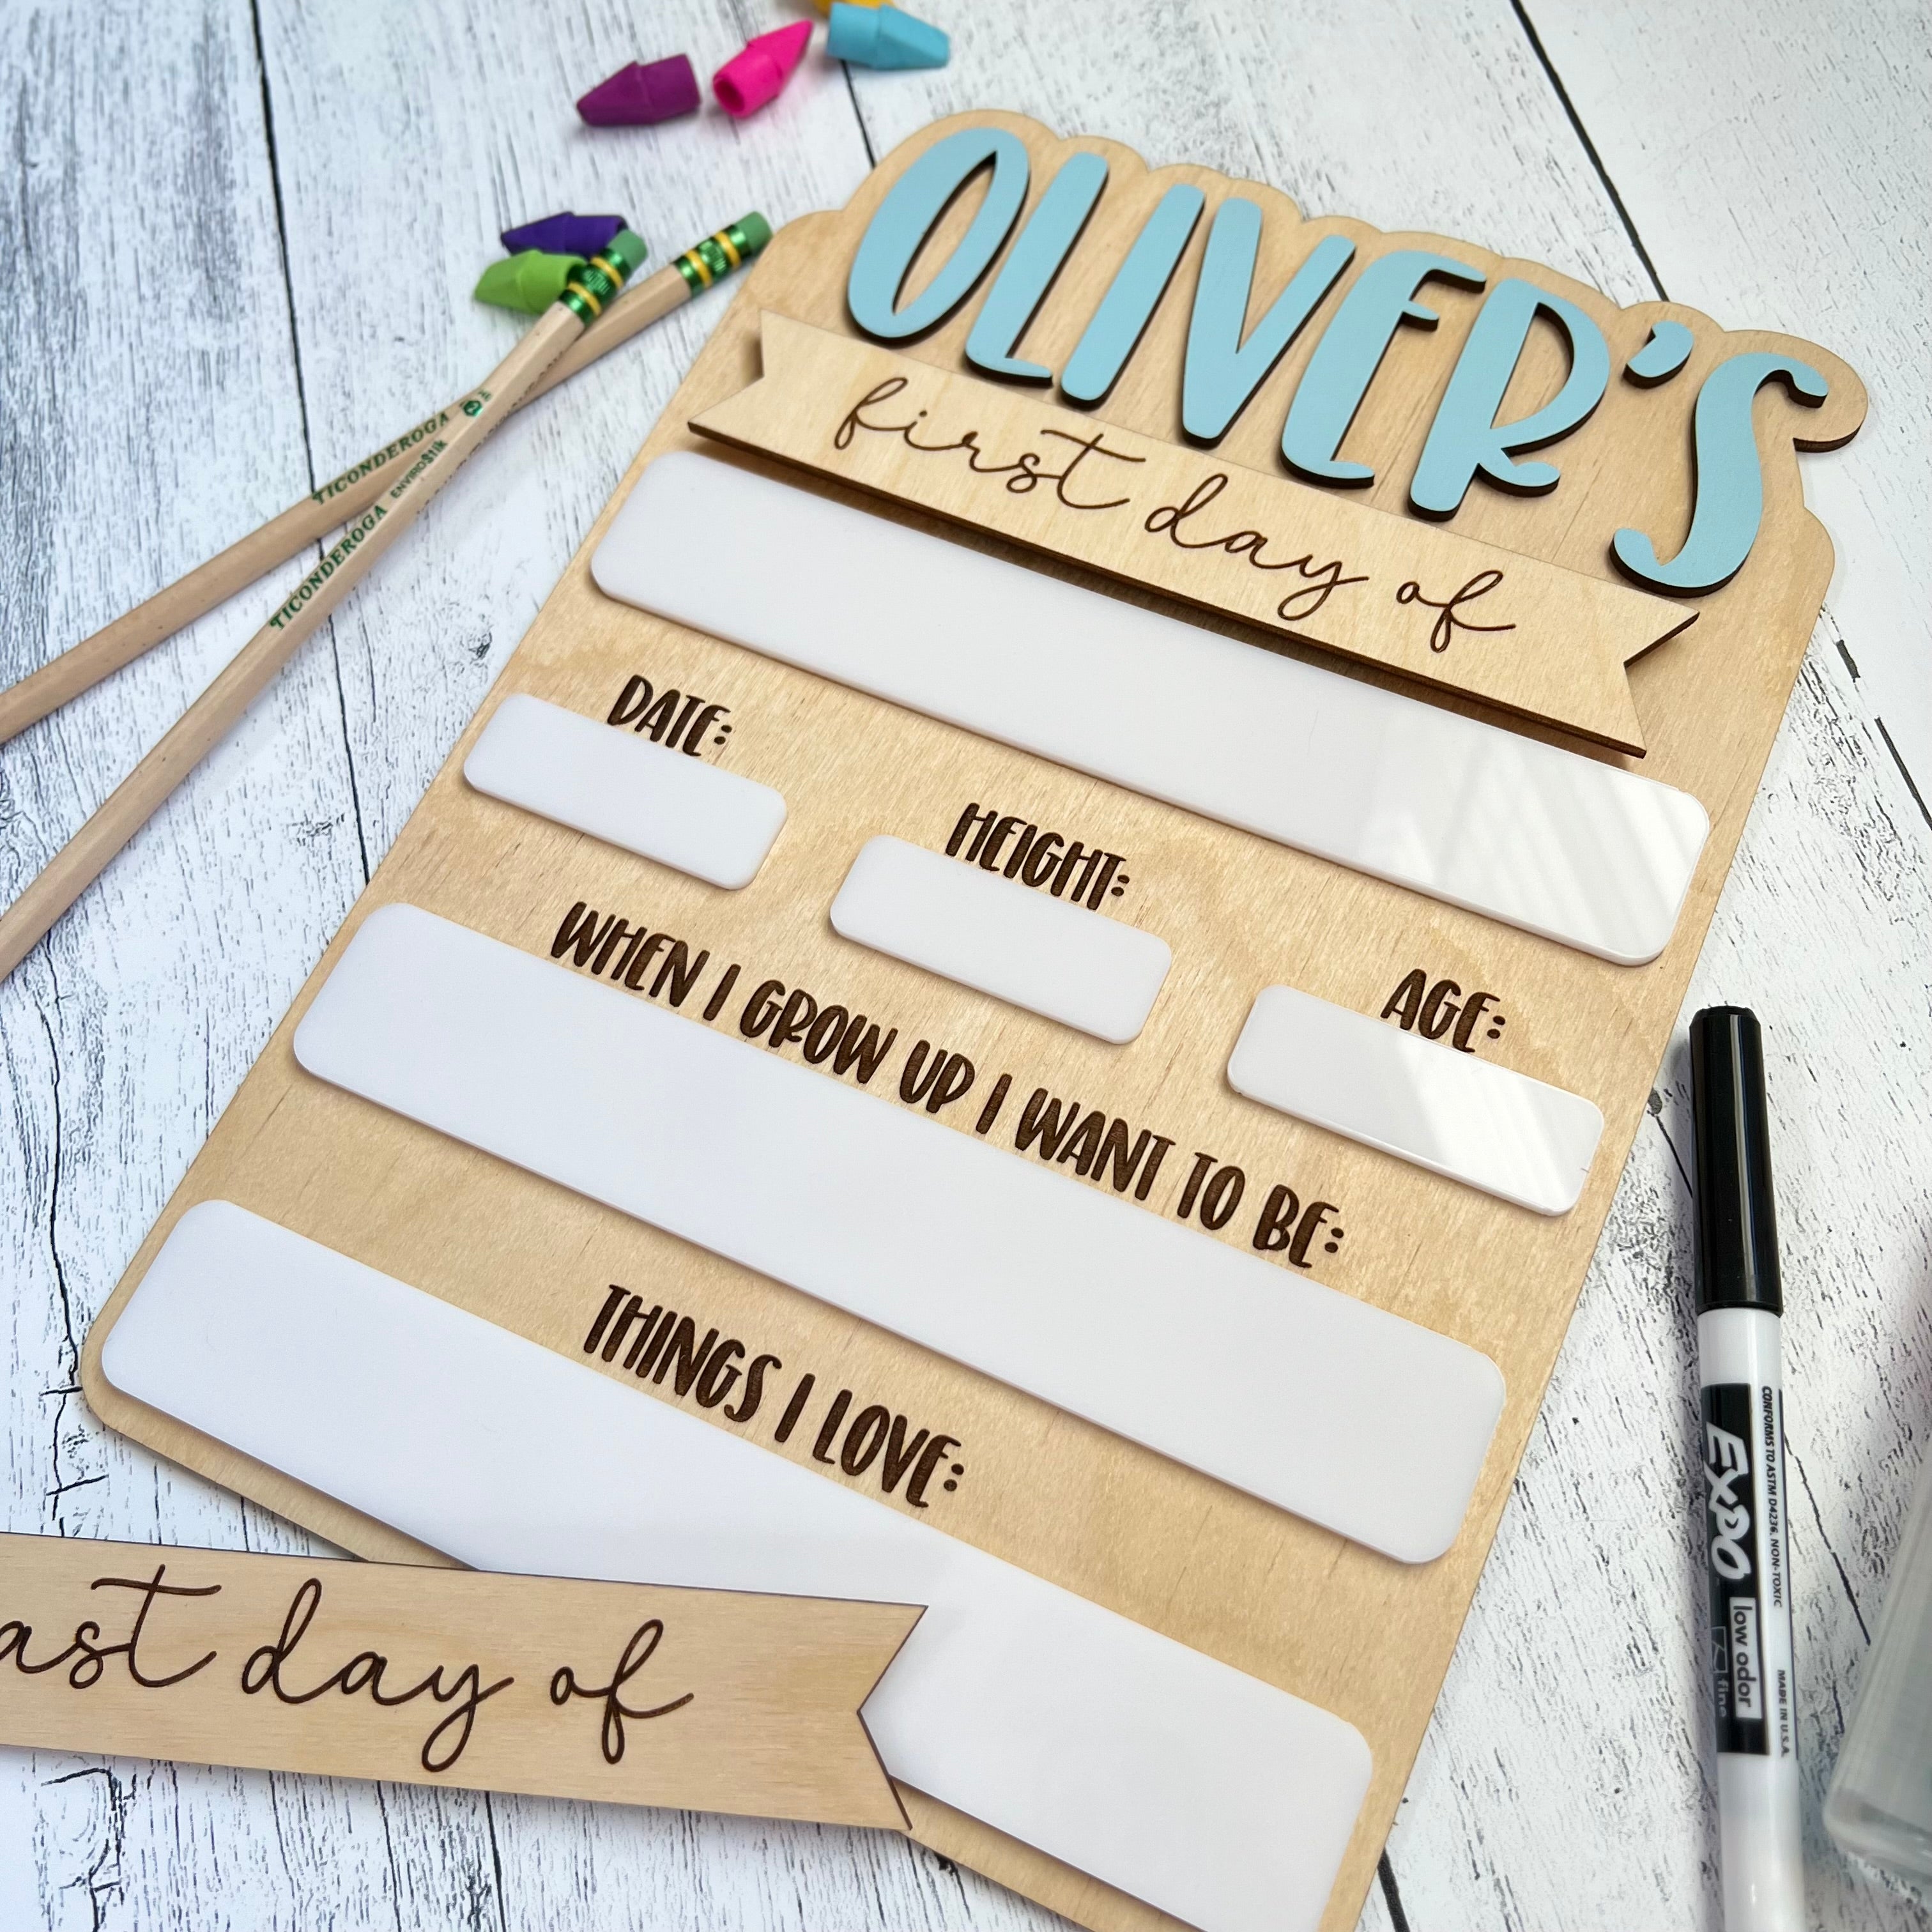 OLIVER'S
first day of
DATE:
HEIGHT:
AGE:
WHEN I GROW UP I WANT TO BE:
THINGS I LOVE:
ast day of
TICONDEROGA
TICONDEROGA ENVIRO$TIK
EXPO low odor
fine
CONFORMS TO ASTM D4236, NON-TOXIC MADE IN U.S.A.